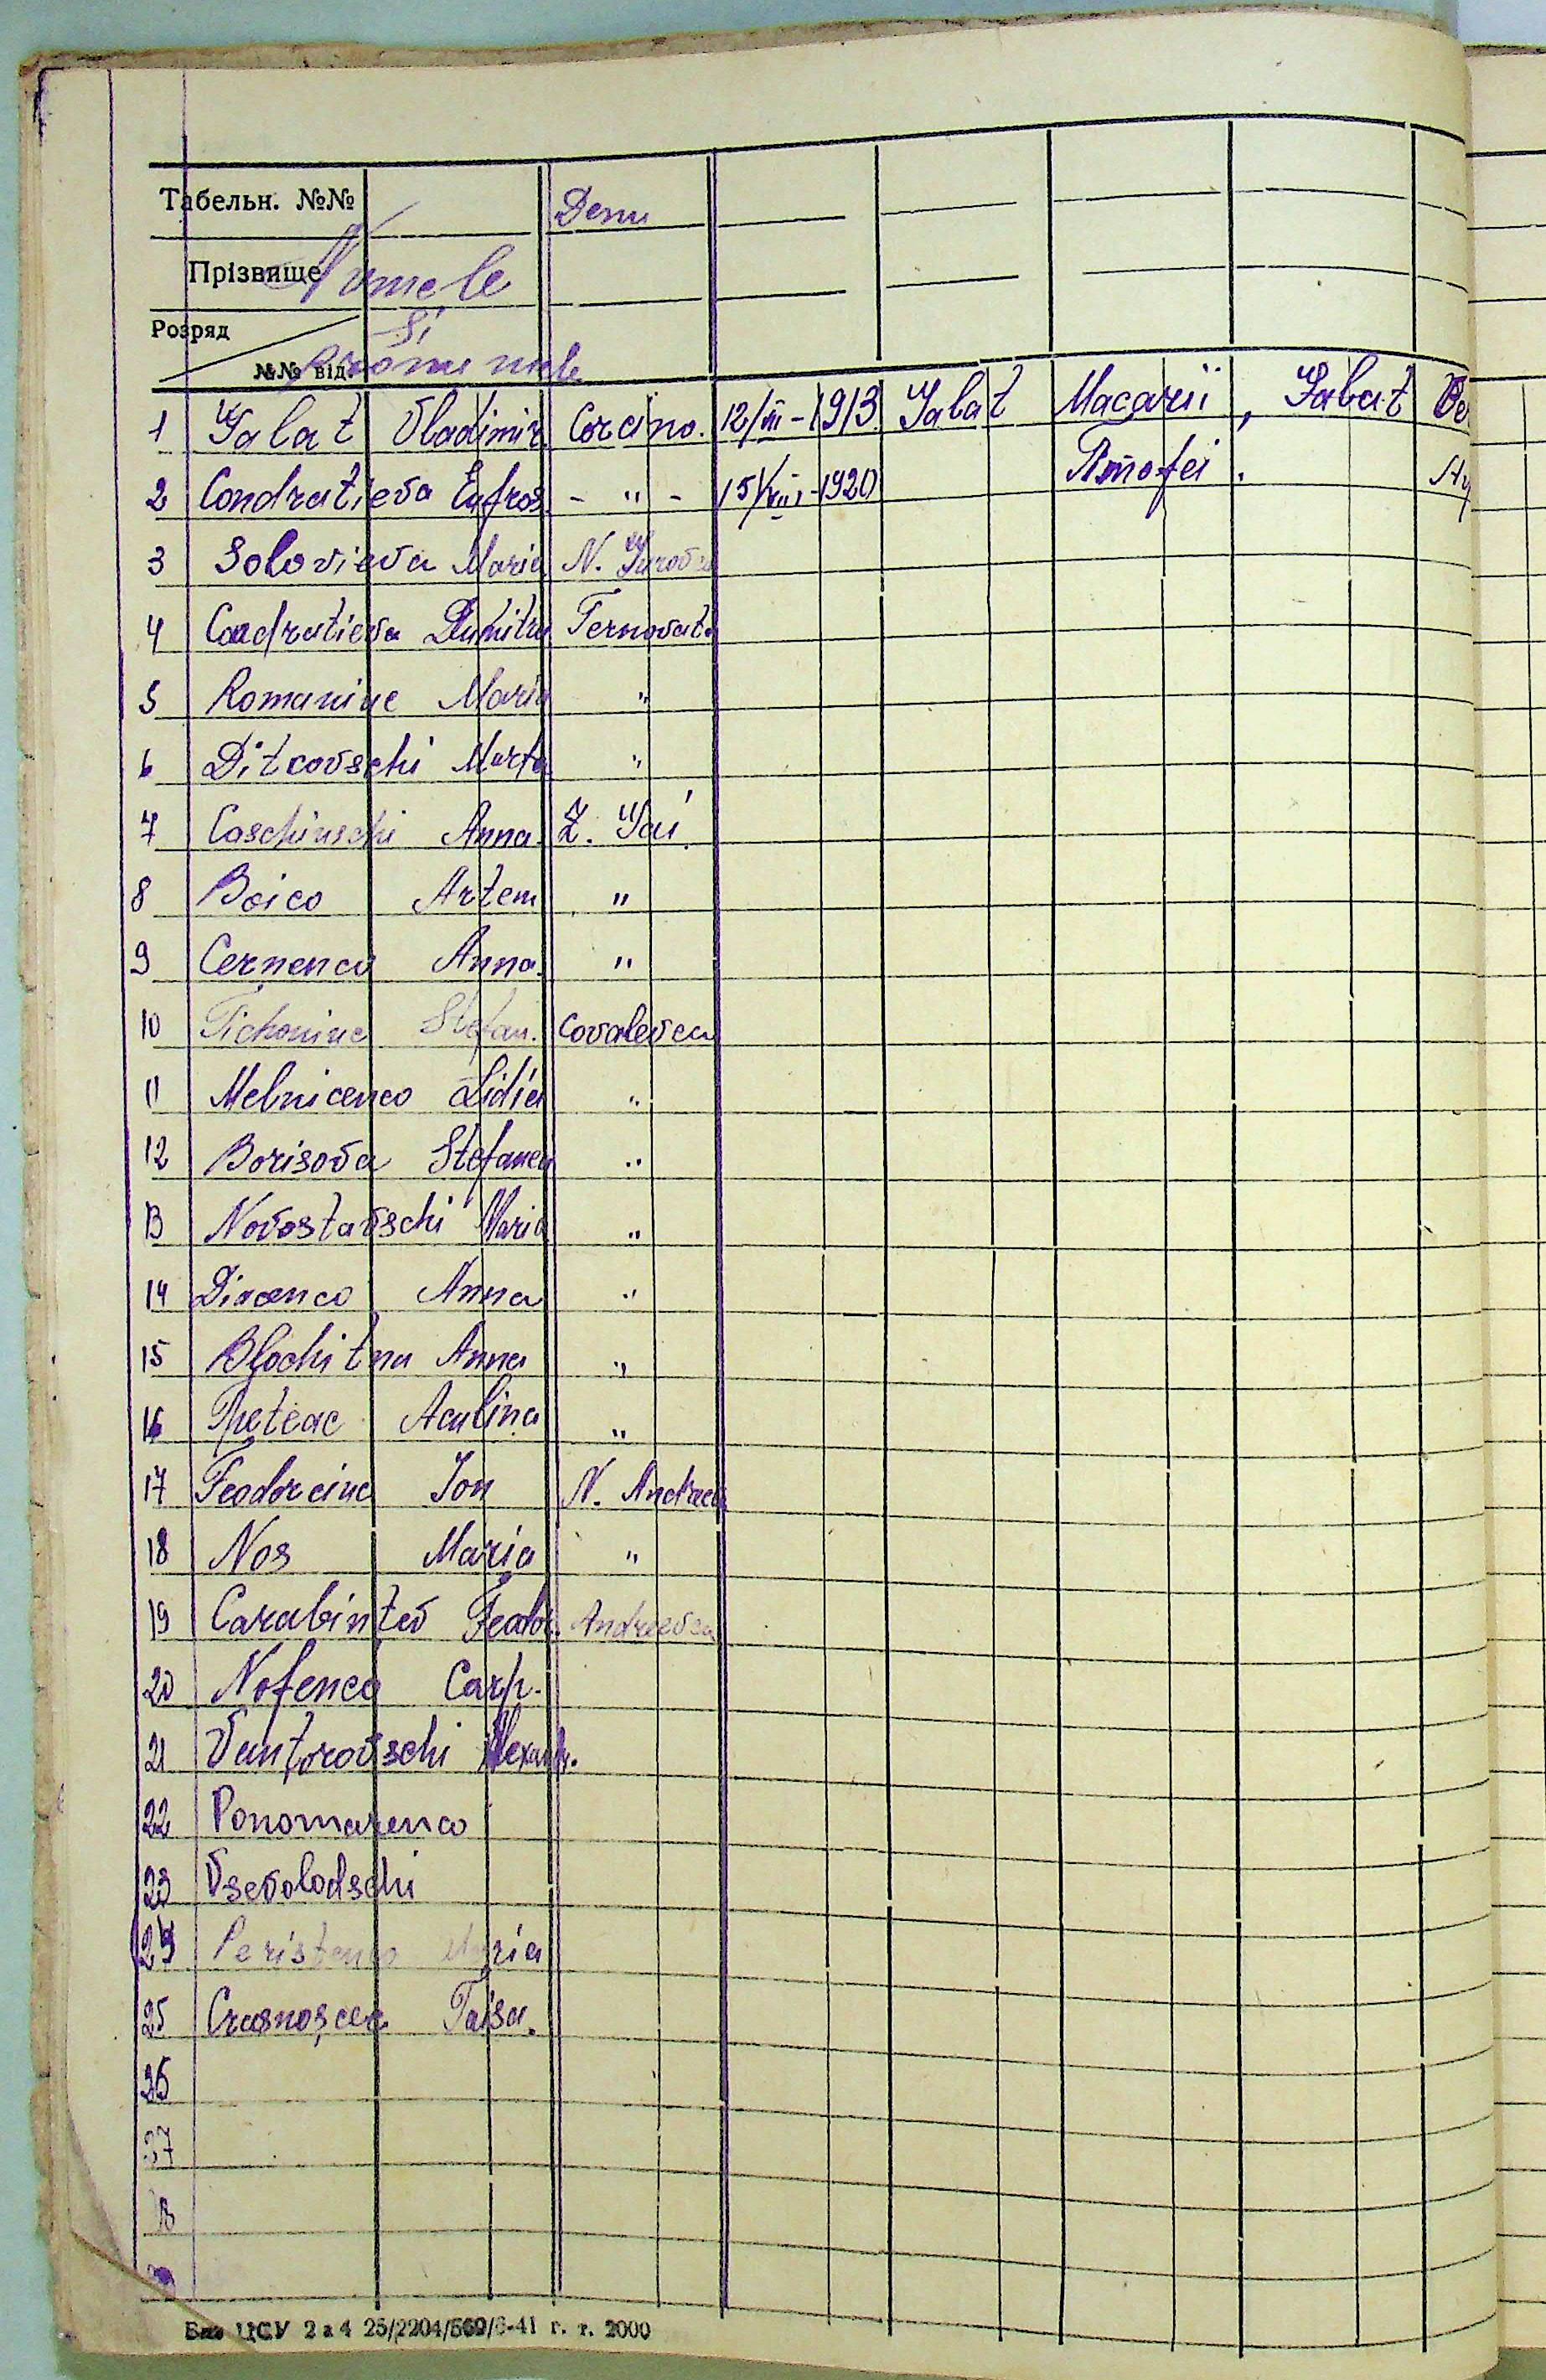 Табельн. №№ Denu
Прізвище Numele
Розряд Și
№№ від. Pronumele
1 Galat Vladimir Corcino. 12/III-1913 Galat Macarii, Galat
2 Condratieva Eufros. - " - 15/VIII-1920 Timofei.
3 Solovieva Maria N.
4 Condratieva Dumitru Ternovata
5 Romaniuc Maria "
6 Ditcovschi Marta "
7 Caschinschi Anna Z. Gai
8 Boico Artem "
9 Cernenco Anna "
10 Tichoniuc Stefan. Covalevca
11 Melnicenco Lidia "
12 Borisova Stefanea "
13 Novostavschi Maria "
14 Diacenco Anna "
15 Blochitna Anna "
16 Treteac Aculina "
17 Feodorciuc Ion N. Andreev
18 Nos Maria "
19 Carabintev Feodor. Andreevca
20 Nofenco Carp.
21 Vantorovschi Alexandr.
22 Ponomarenco
23 Vsevolodschi
24 Peristenco Maria
25 Crasnoșcec Taisa.
26
27
28
29
Ваг ЦСУ 2 а 4 25/2204/569/6-41 г. т. 2000